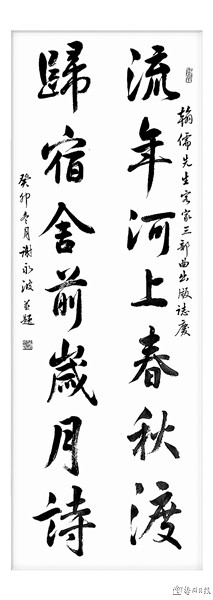 翰儒先生客家三部曲出版誌慶
流年河上春秋渡
歸宿舍前歲月詩
癸卯冬月謝永波並題
梅州日报